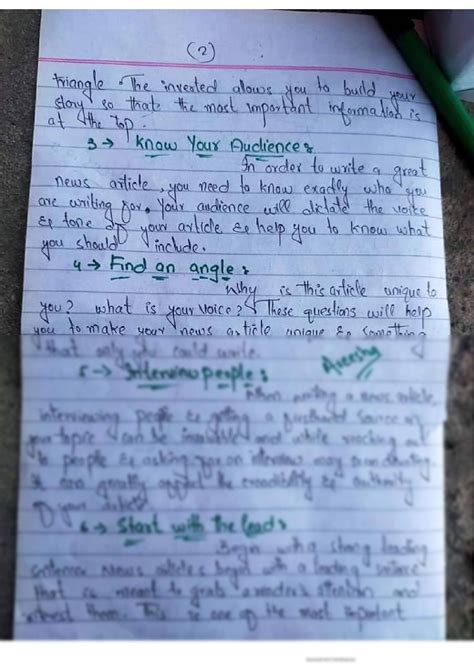 (2)
triangle. The invested allows you to build your
story so that the most important information is
at the Top.
3 → Know Your Audience:
In order to write a great
news article, you need to know exactly who you
are writing for. Your audience will dictate the voice
& tone of your article & help you to know what
you should include.
4 → Find an angle:
Why is this article unique to
you? what is your voice? These questions will help
you to make your news article unique & something
that only you could write.
5 → Interview people:
When writing a news article,
interviewing people & getting a firsthand source of
your topic can be invaluable and while reaching out
to people & asking for an interview may seem daunting
it can greatly affect the credibility & authority
of your article
6 → Start with the lead:
Begin with a strong leading
sentence News articles begin with a leading sentence
that is meant to grab a reader's attention and
interest them. This is one of the most important